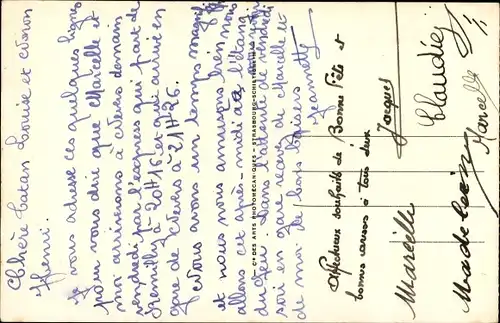 Chère Tatan Louise et Tonton
Henri.
Je vous adresse ces quelques lignes
pour vous dire que Marcelle et
moi arriverons à demain
vendredi par l'express qui part de
Remilly à 20H16 et qui arrive en
gare de à 21H26.
Nous avons un temps magnif
et nous nous amusons bien nous
allons cet après-midi à l'étang
du
soir en gare reçois de Marcelle et
de moi de bons baisers
Jeannette
Cie DES ARTS PHOTOMÉCANIQUES - STRASBOURG-SCHILTIGHEIM
Affectueux souhaits de Bonne Fête et
bonnes vacances à tous deux
Jacques
Marcelle
Claudie
Madeleine
Marcelle